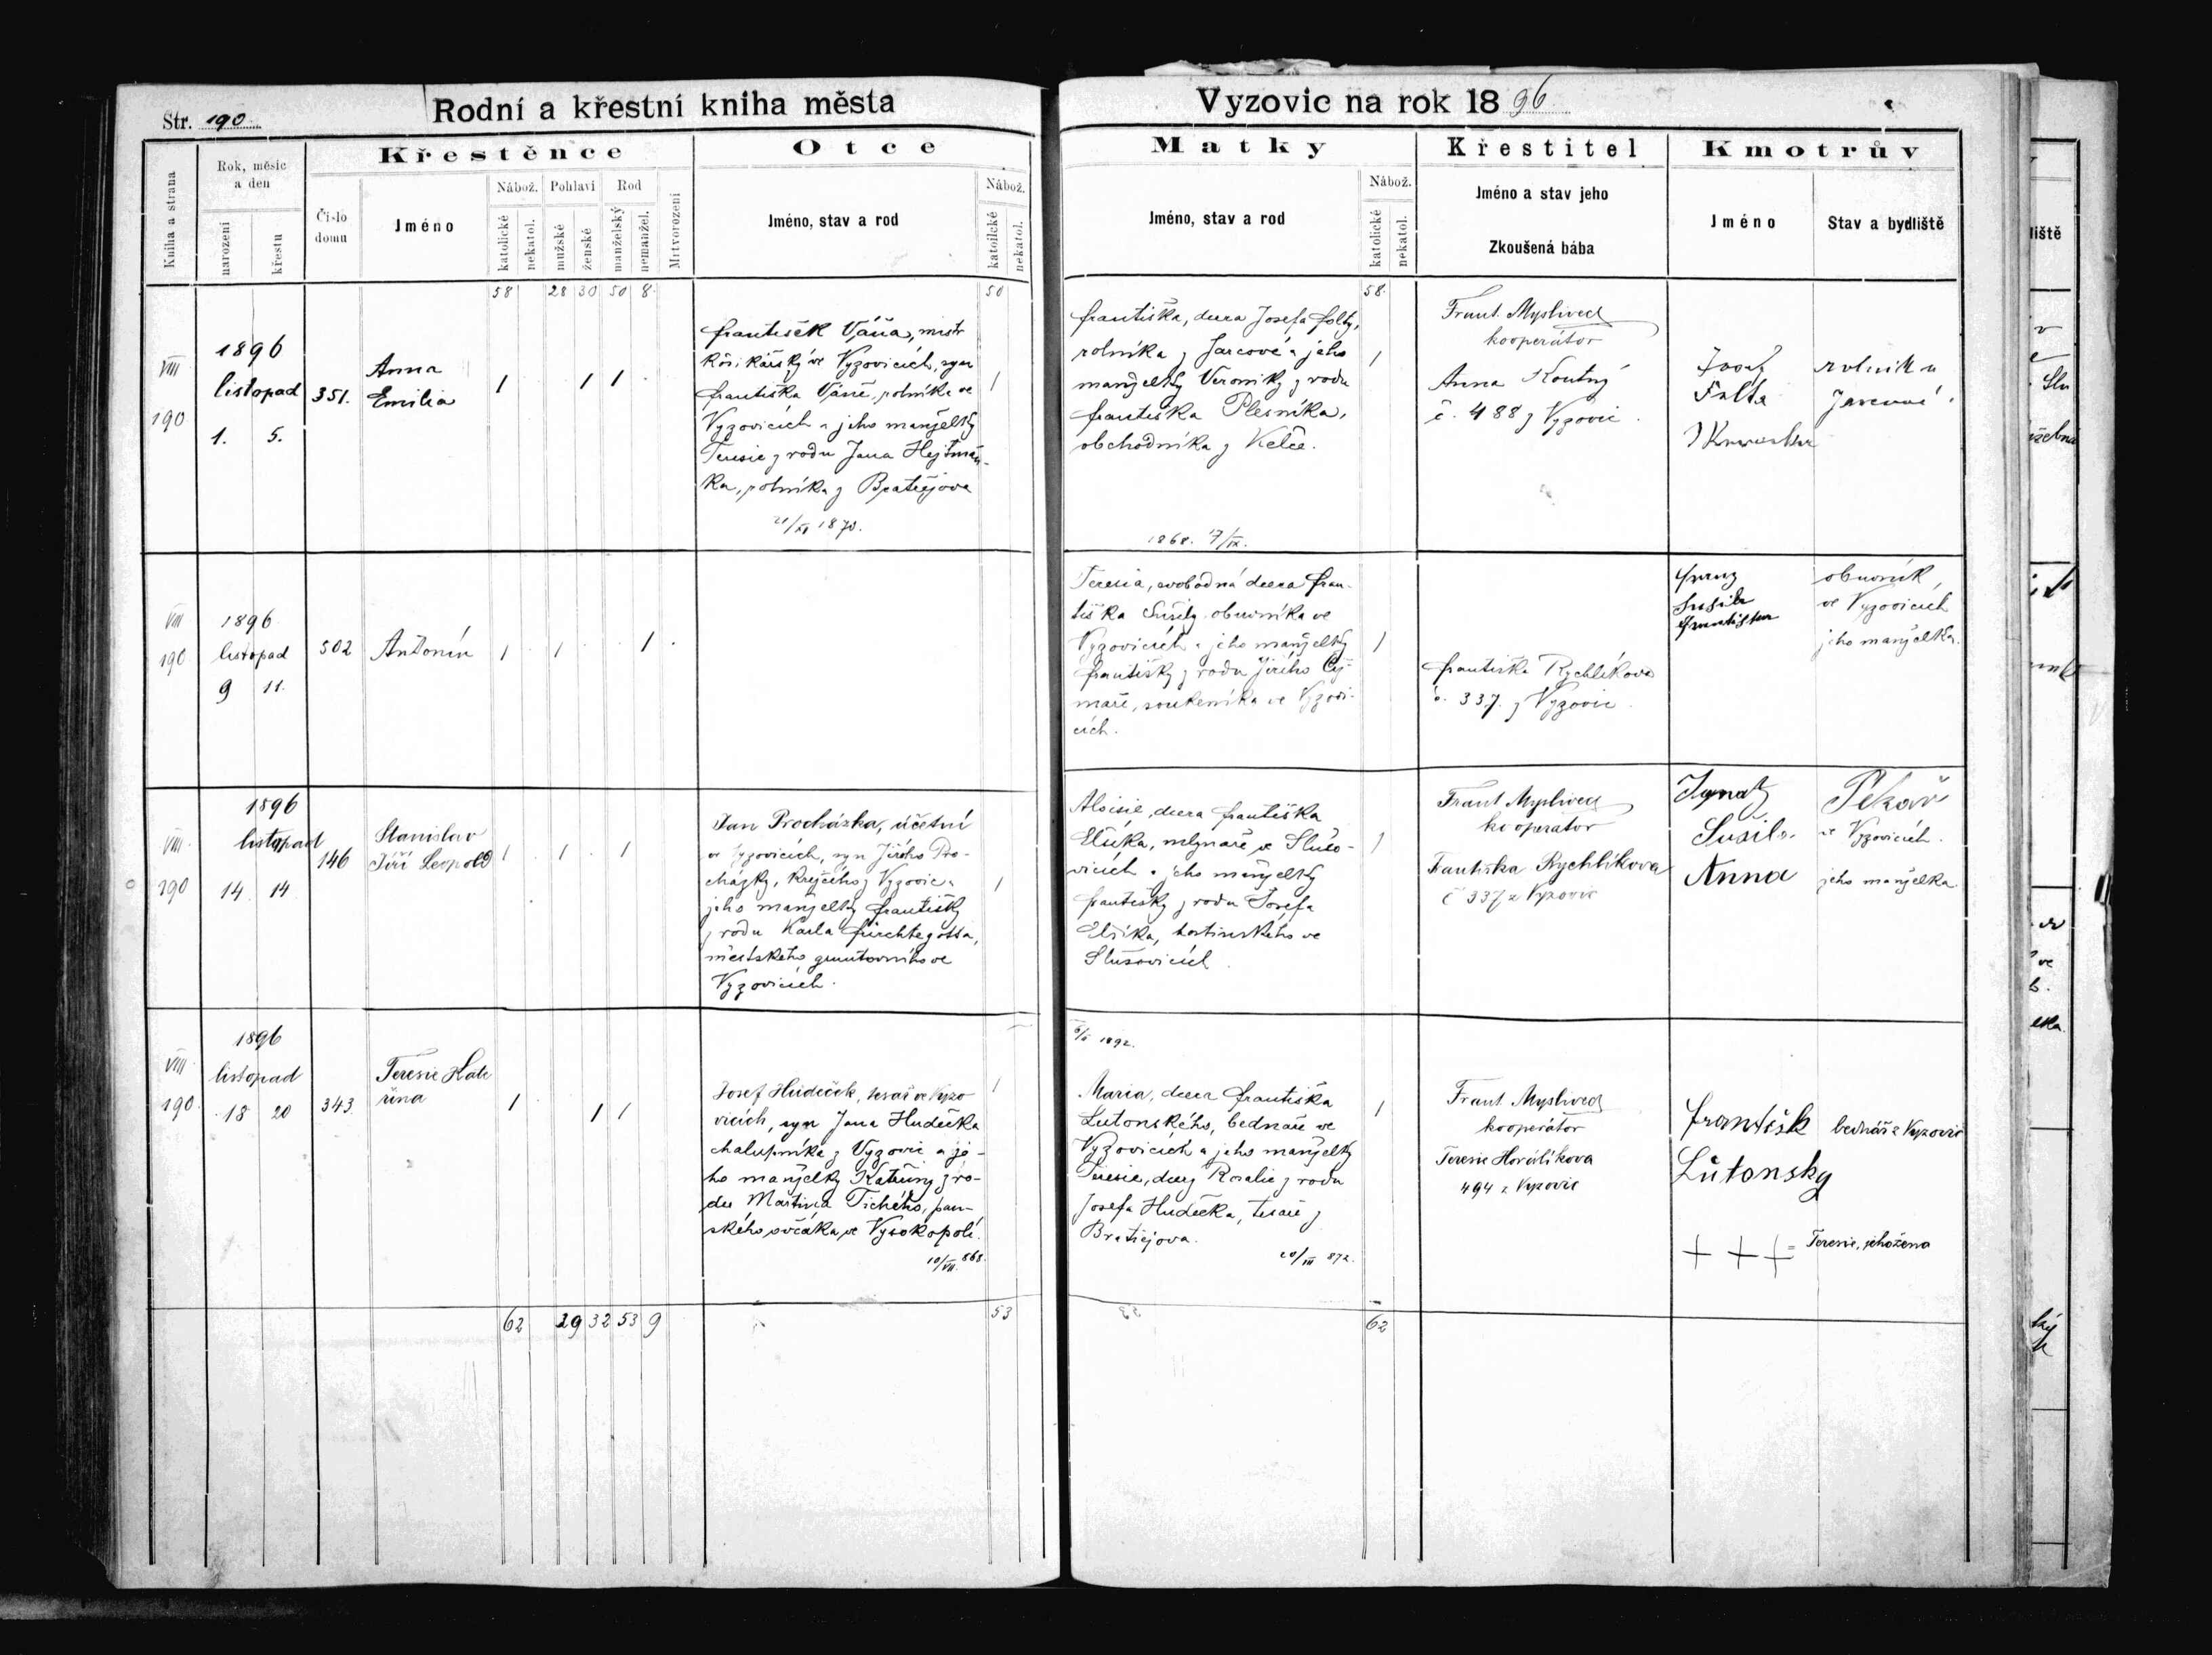 Str. 190
Rodní a křestní kniha města
Vyzovic na rok 18 96
Kniha a strana
Rok, měsíc
a den
narození
křestu
Křestěnce
Číslo
domu
Jméno
Nábož.
katolické
nekatol.
Pohlaví
mužské
ženské
Rod
manželský
nemanžel.
Mrtvorození
Otce
Jméno, stav a rod
Nábož.
katolické
nekatol.
Matky
Jméno, stav a rod
Nábož.
katolické
nekatol.
Křestitel
Jméno a stav jeho
Zkoušená bába
Kmotrův
Jméno
Stav a bydliště
58 28 30 50 8
50
58
VIII
190
1896
listopad
1. 5.
351.
Anna
Emilia
1 1 1
František Váňa, mistr
ve Vyzovicích, syn
Františka Váně, rolníka ve
Vyzovicích a jeho manželky
Teresie z rodu Jana Hejtmán-
ka, rolníka z Bratřejova
21/XI 1870.
1
Františka, dcera Josefa Folty,
rolníka z Jarcové a jeho
manželky Veroniky z rodu
Františka Plesníka,
obchodníka z Kelče.
1868. 17/IX.
1
Frant. Myslivec
kooperátor
Anna Koutný
č. 488 z Vyzovic.
Josef
Folta
rolník z
Jarcové
VIII
190
1896
listopad
9 11.
502
Antonín
1 1 1
Teresia, svobodná dcera Fran-
tiška Sušily, obuvníka ve
Vyzovicích a jeho manželky
Františky z rodu Jiřího Cý-
maře, soukeníka ve Vyzovi-
cích.
1
Františka Rychlíkova
č. 337. z Vyzovic.
Franz
Susila
Frantiska
obuvník,
ve Vyzovicích
jeho manželka.
VIII
190
1896
listopad
14 14
146
Stanislav
Jiří Leopold
1 1 1
Jan Procházka, účetní
ve Vyzovicích, syn Jiřího Pro-
cházky, krejčího z Vyzovic a
jeho manželky Františky
z rodu Karla Fürchtegotta,
městského ve
Vyzovicích.
1
Aloisie, dcera Františka
Elšíka, mlynáře ve Slušo-
vicích a jeho manželky
Františky z rodu Josefa
Elšíka, hostinského ve
Slušovicích.
1
Frant. Myslivec
kooperator
Františka Rychlíkova
č 337 z Vyzovic
Ignatz
Sušila
Anna
Pekař
ve Vyzovicích.
jeho manželka.
VIII
190
1896
listopad
18 20
343
Teresie Kate
řina
1 1 1
Josef Hudeček, tesař ve Vyzo
vicích, syn Jana Hudečka
chalupníka z Vyzovic a je-
ho manželky Kateřiny z ro-
du Martina Tichého, pan-
ského ovčáka, ve Vysokopolí.
10/VII. 868.
1
1892.
Maria, dcera Františka
Lutonského, bednáře ve
Vyzovicích a jeho manželky
Teresie, dcery Rosalie z rodu
Josefa Hudečka, tesaře z
Bratřejova.
20/III 872.
1
Frant. Myslivec
kooperátor
Teresie Horálíkova
494 z Vyzovic
František
Lůtonsky
bednář z Vyzovic
+ + + = Teresie, jeho žena
62 29 32 53 9
53
62